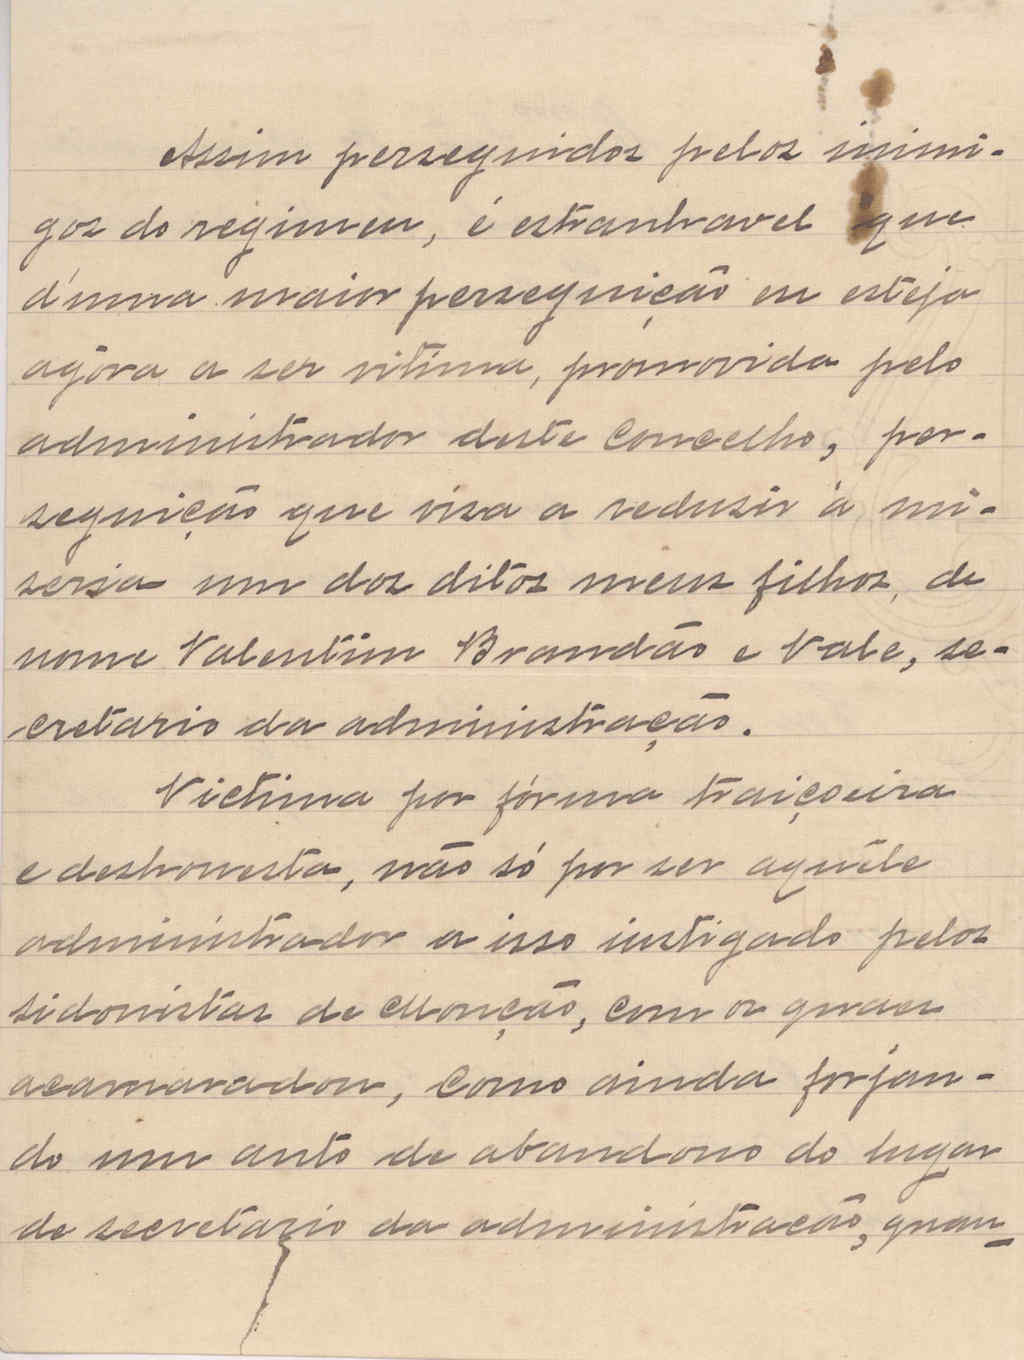 Assim perseguidos pelos inimi-
gos do regimen, é estranhavel que
d'uma maior perseguição eu esteja
agóra a ser vitima, promovida pelo
administrador deste concelho, per-
seguição que visa a reduzir à mi-
seria um dos ditos meus filhos, de
nome Valentim Brandão e Vale, se-
cretario da administração.
Victima por fórma traiçoeira
e deshonesta, não só por ser aquêle
administrador a isso instigado pelos
sidonistas de Monção, com os quaes
acamaradou, como ainda forjan-
do um auto de abandono do lugar
de secretario da administração, quan-